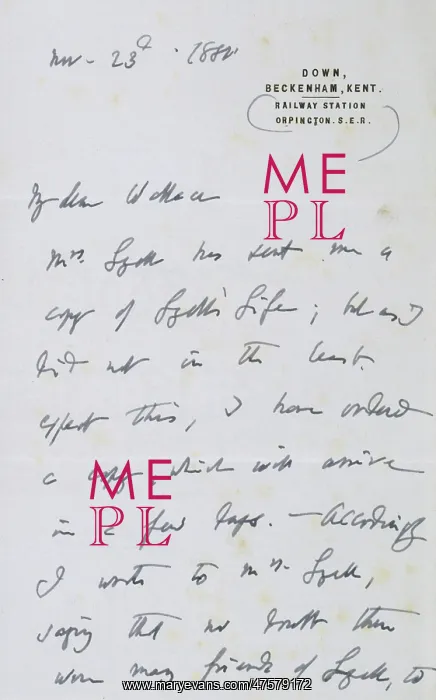 Nov. 23d. 1881
DOWN,
BECKENHAM, KENT.
RAILWAY STATION
ORPINGTON. S.E.R.
My dear Wallace
Mrs. Lyell has sent me a
copy of Lyell's Life; but as I
did not in the least
expect this, I have ordered
a copy which will arrive
in a few days. — Accordingly
I wrote to Mrs. Lyell,
saying that no doubt there
were many friends of Lyell, to
ME
PL
ME
PL
www.maryevans.com/47579172